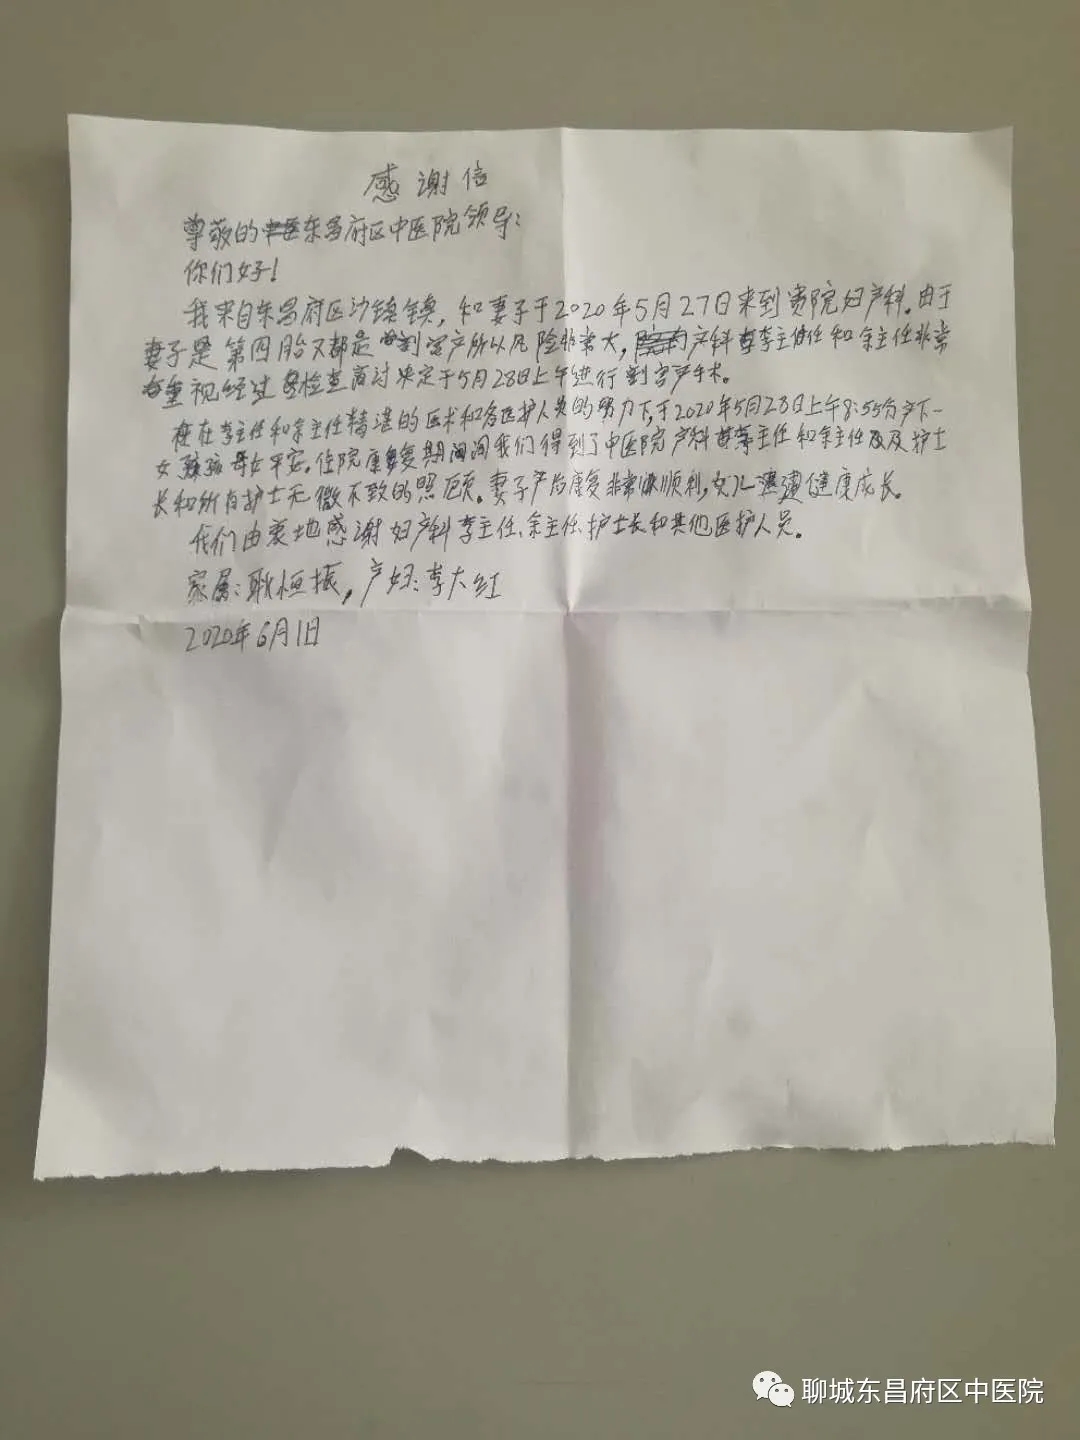 感谢信
尊敬的东昌府区中医院领导：
你们好！
我来自东昌府区沙镇镇，和妻子于2020年5月27日来到贵院妇产科。由于
妻子是第四胎又都是剖宫产所以风险非常大，产科李主任和余主任非常
重视经过检查商讨决定于5月28日上午进行剖宫产手术。
在李主任和余主任精湛的医术和各医护人员的努力下，于2020年5月28日上午8:55分产下一
女孩母女平安。住院康复期间我们得到了中医院产科李主任和余主任及护士
长和所有护士无微不致的照顾。妻子产后康复非常顺利，女儿健康成长。
我们由衷地感谢妇产科李主任、余主任、护士长和其他医护人员。
家属：耿恒振，产妇：李大红
2020年6月1日
聊城东昌府区中医院